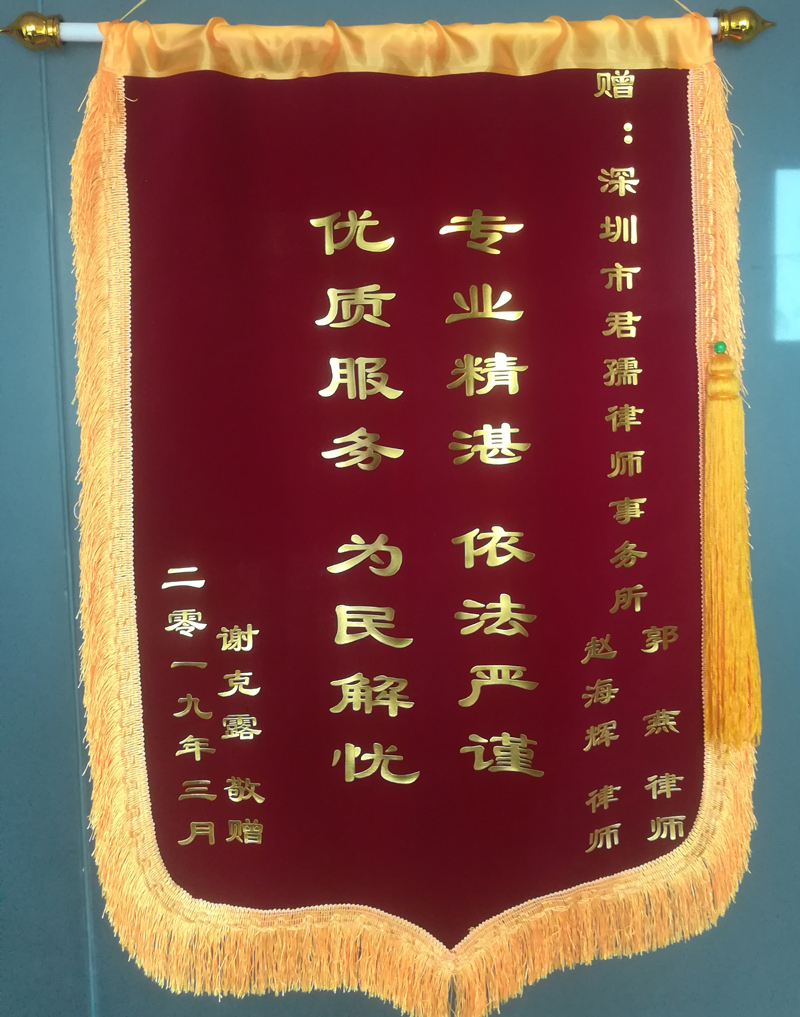 赠：深圳市君孺律师事务所
郭燕 律师
赵海辉 律师
专业精湛 依法严谨
优质服务 为民解忧
谢克露 敬赠
二零一九年三月